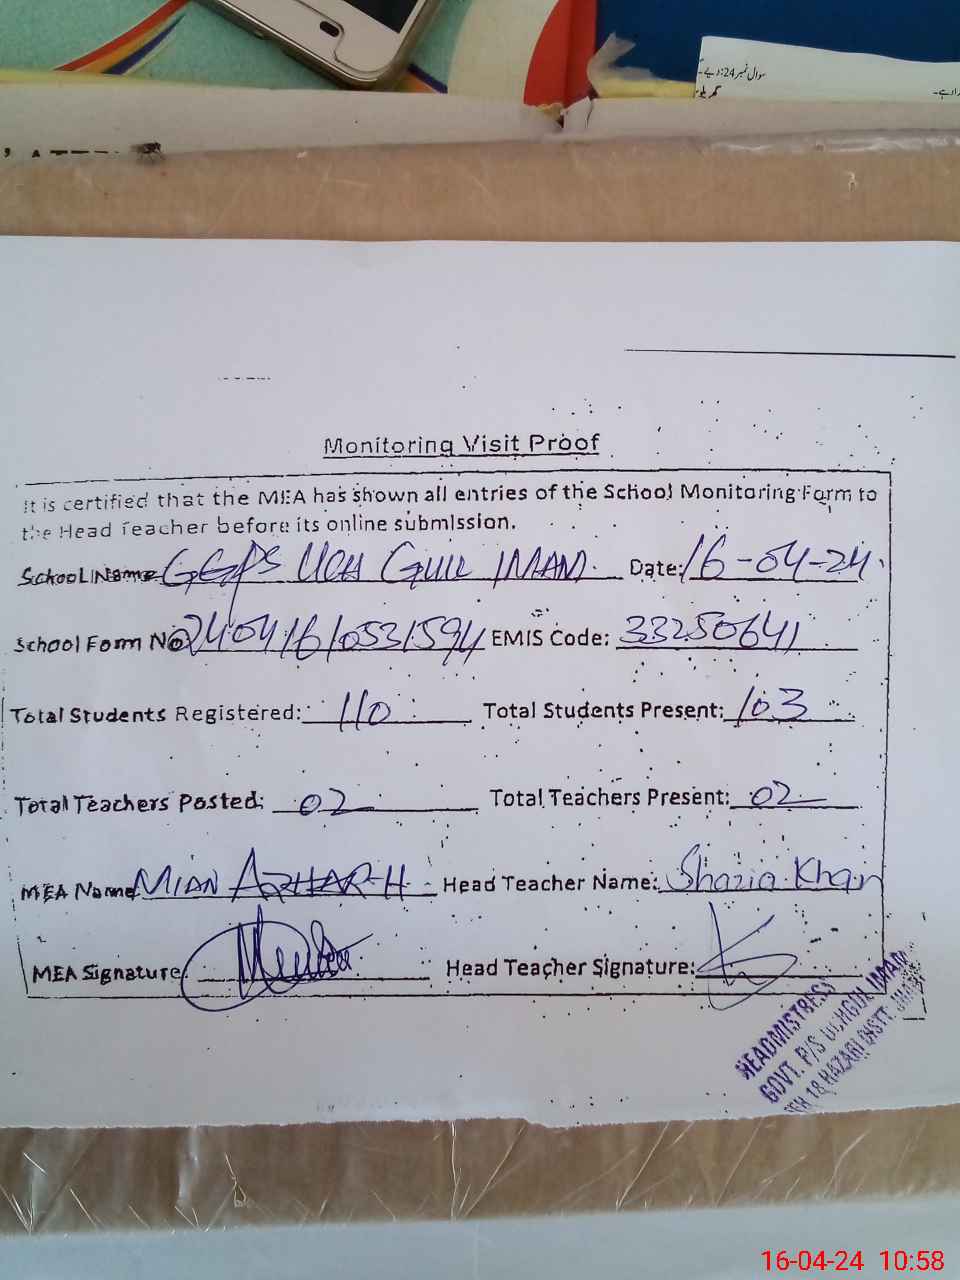 سوال نمبر 24:
Monitoring Visit Proof
It is certified that the MEA has shown all entries of the School Monitoring Form to
the Head Teacher before its online submission.
School Name GGPS UCH GULL IMAM. Date: 16-04-24
School Form No 24041610531594 EMIS Code: 33250641
Total Students Registered: 110 Total Students Present: 103
Total Teachers Posted: 02 Total Teachers Present: 02
MEA Name MIAN AZHAR-H Head Teacher Name: Shazia Khan
MEA Signature Head Teacher Signature:
HEADMISTRESS
GOVT. P/S UCHGUL IMAM
18 HAZARI DISTT.
16-04-24 10:58